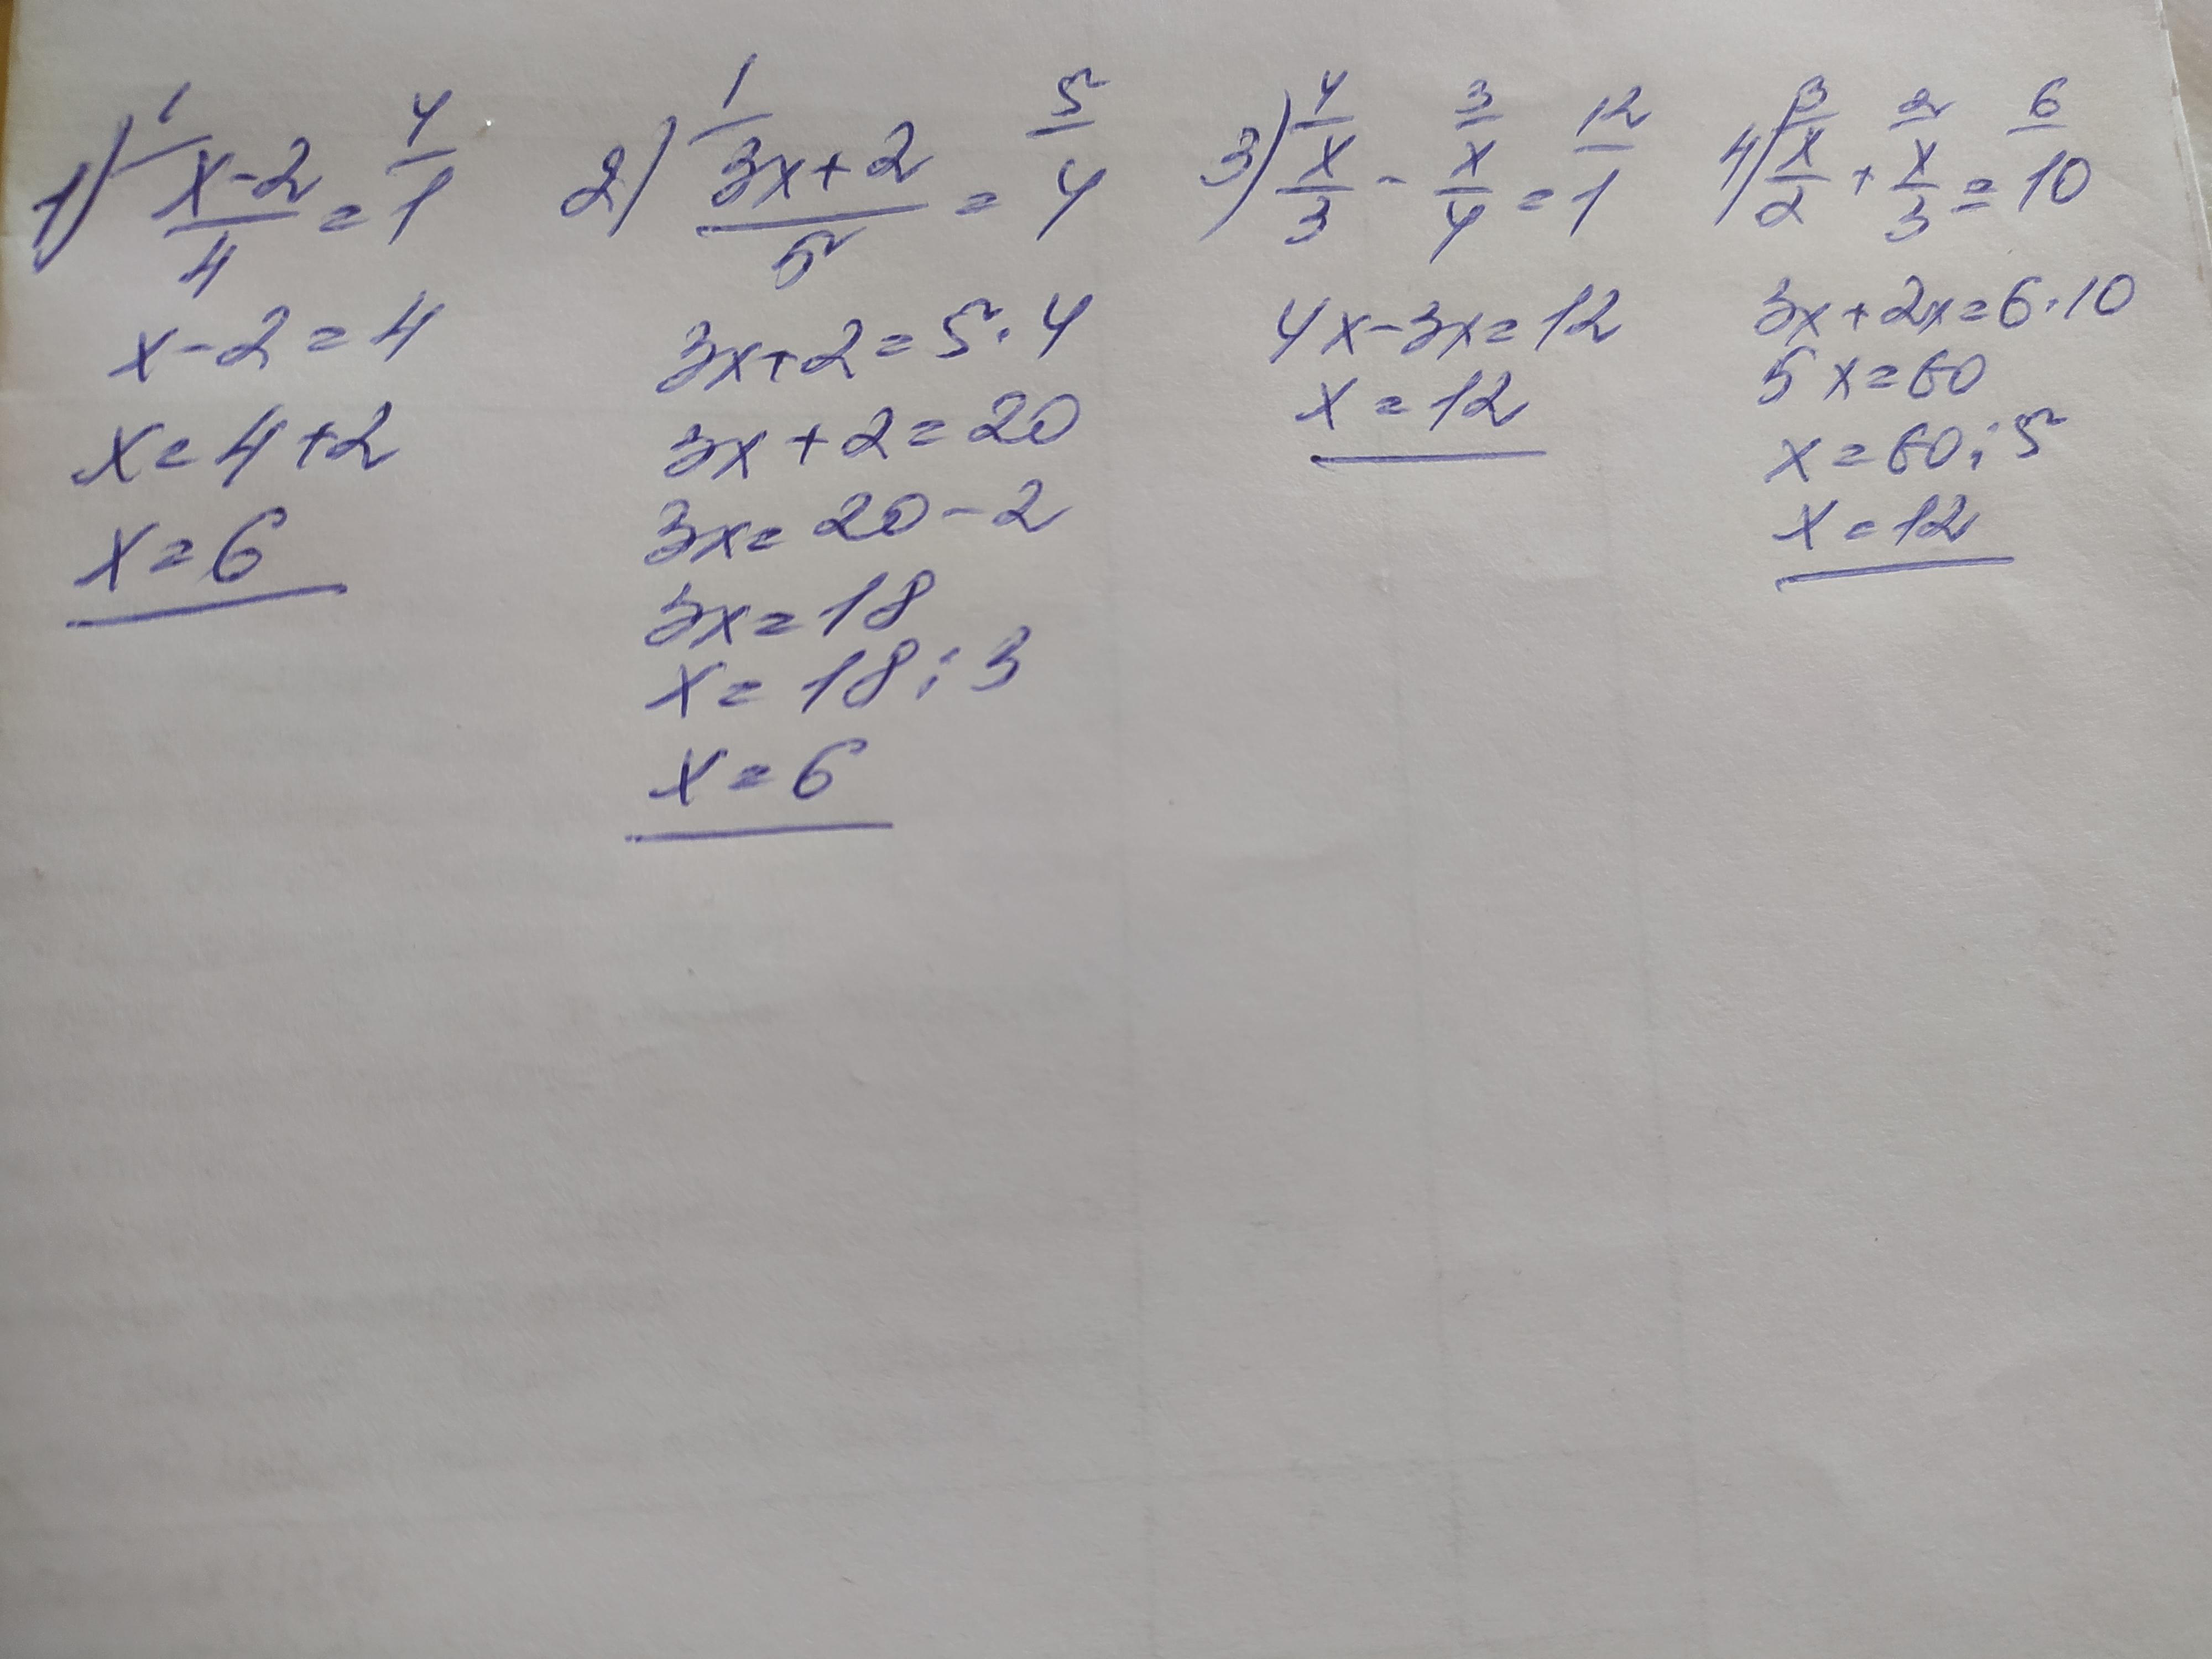 1) 1/ (x-2)/4 = 4/ 1
x-2=4
x=4+2
x=6
2) 1/ (3x+2)/5 = 5/ 4
3x+2=5·4
3x+2=20
3x=20-2
3x=18
x=18:3
x=6
3) 4/ x/3 - 3/ x/4 = 12/ 1
4x-3x=12
x=12
4) 3/ x/2 + 2/ x/3 = 6/ 10
3x+2x=6·10
5x=60
x=60:5
x=12